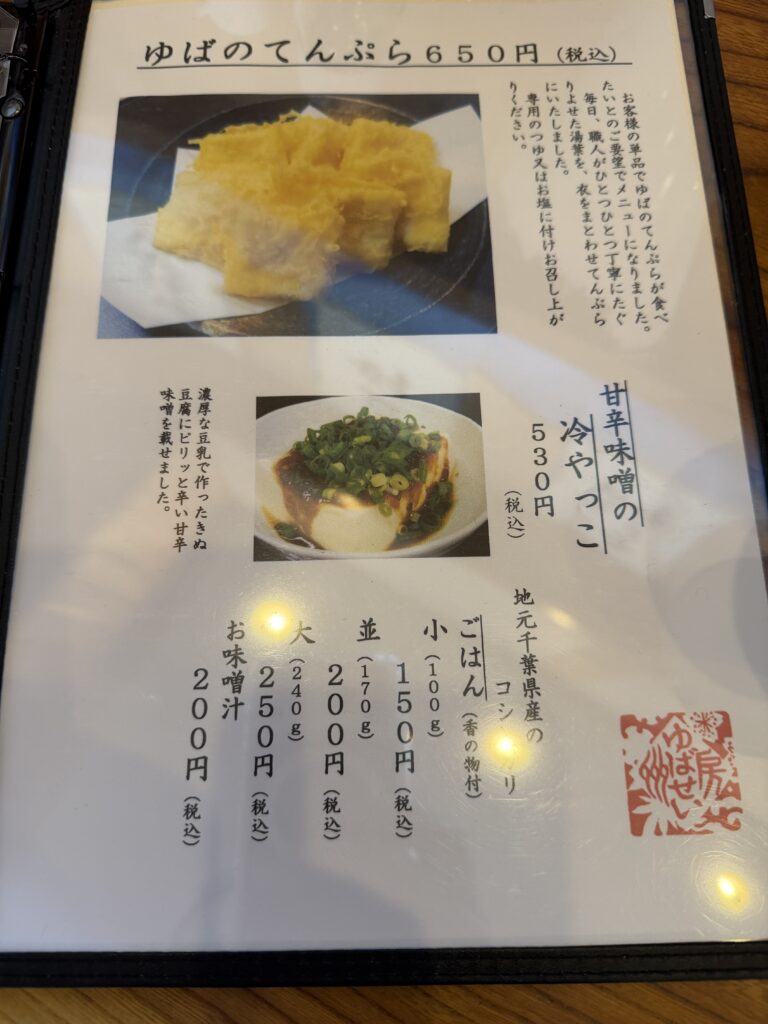 ゆばのてんぷら６５０円（税込）
お客様の単品でゆばのてんぷらが食べ
たいとのご要望でメニューになりました。
毎日、職人がひとつひとつ丁寧にたぐ
りよせた湯葉を、衣をまとわせてんぷら
にいたしました。
専用のつゆ又はお塩に付けお召し上が
りください。
甘辛味噌の
冷やっこ
５３０円
（税込）
濃厚な豆乳で作ったきぬ
豆腐にピリッと辛い甘辛
味噌を載せました。
地元千葉県産の
コシ カリ
ごはん（香の物付）
小（１００ｇ）
１５０円（税込）
並（１７０ｇ）
２００円（税込）
大（２４０ｇ）
２５０円（税込）
お味噌汁
２００円（税込）
房
ゆばせい